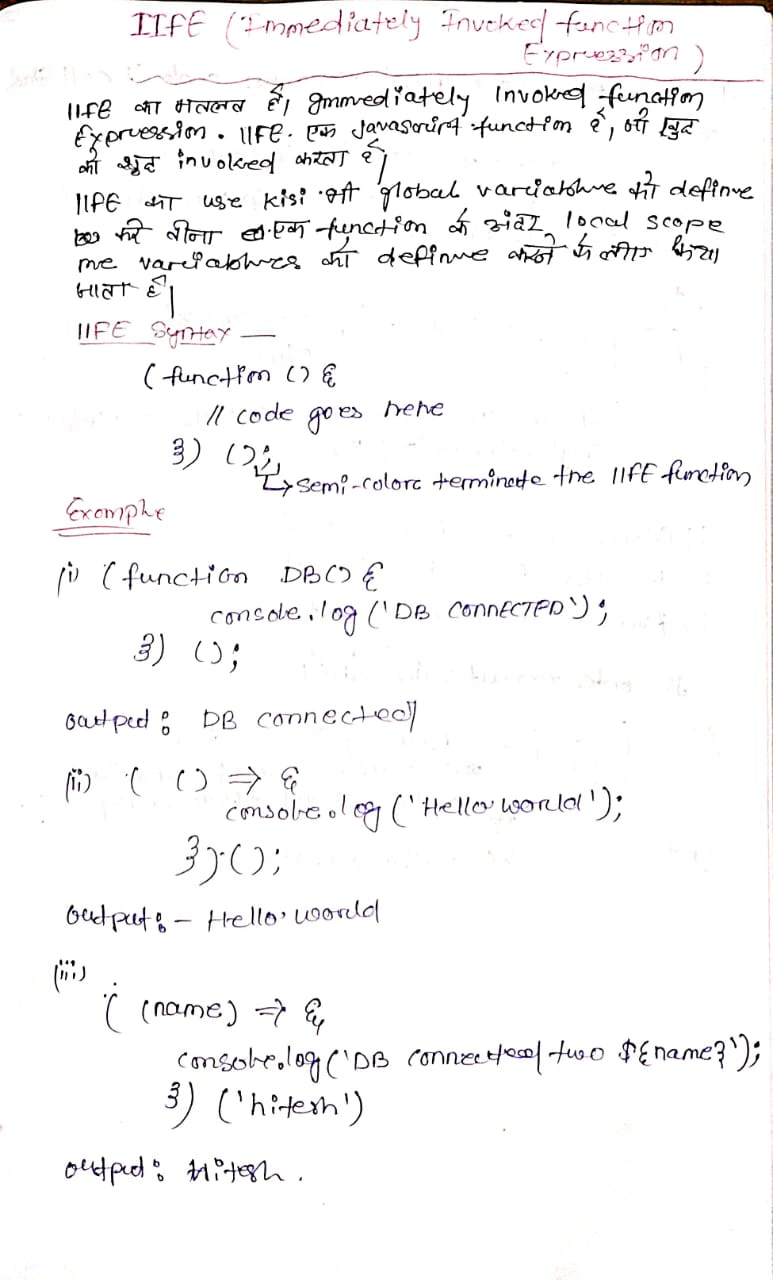 IIFE (Immediately Invoked function
Expression)
IIFE का मतलब है, Immediately Invoked function
Expression. IIFE. एक Javascript function है, जो खुद
को खुद invoked करता है|
IIFE का use kisi भी global variable को define
करे बीना एक function के अंदर local scope
me variables को define करने के लीए किया
जाता है|
IIFE Syntax —
(function () {
// code goes here
}) ();
↳ semi-colon terminate the IIFE function
Example
(i) (function DB() {
console.log('DB CONNECTED');
}) ();
output: DB connected
(ii) ( () => {
console.log('Hello world');
})();
output:- Hello world
(iii)
( (name) => {
console.log('DB connected two ${name}');
}) ('hitesh')
output: Hitesh.